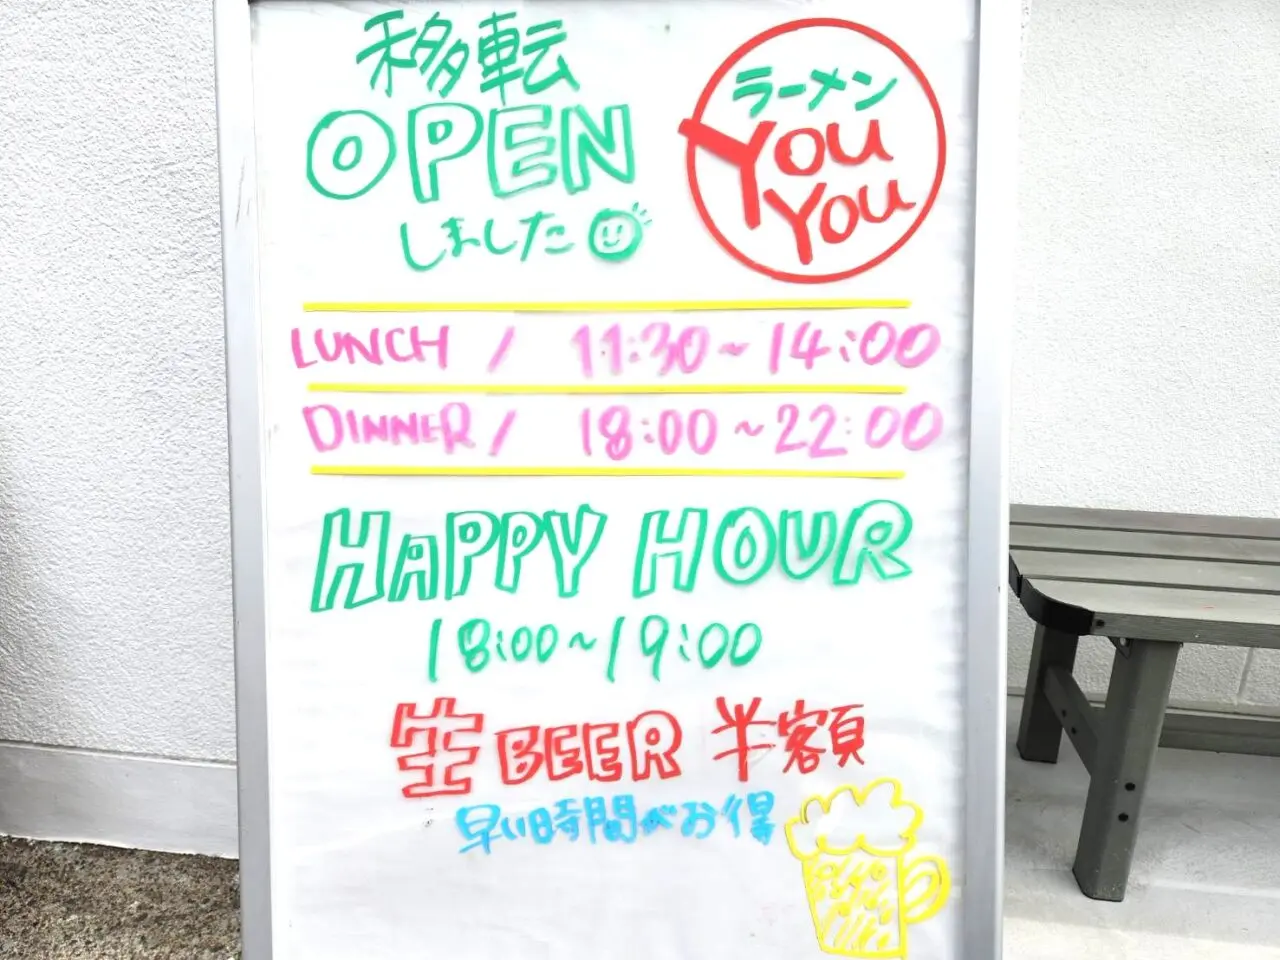 移転
OPEN
しました
ラーメン
YOU
YOU
LUNCH / 11:30~14:00
DINNER / 18:00~22:00
HAPPY HOUR
18:00~19:00
生BEER 半額
早い時間がお得